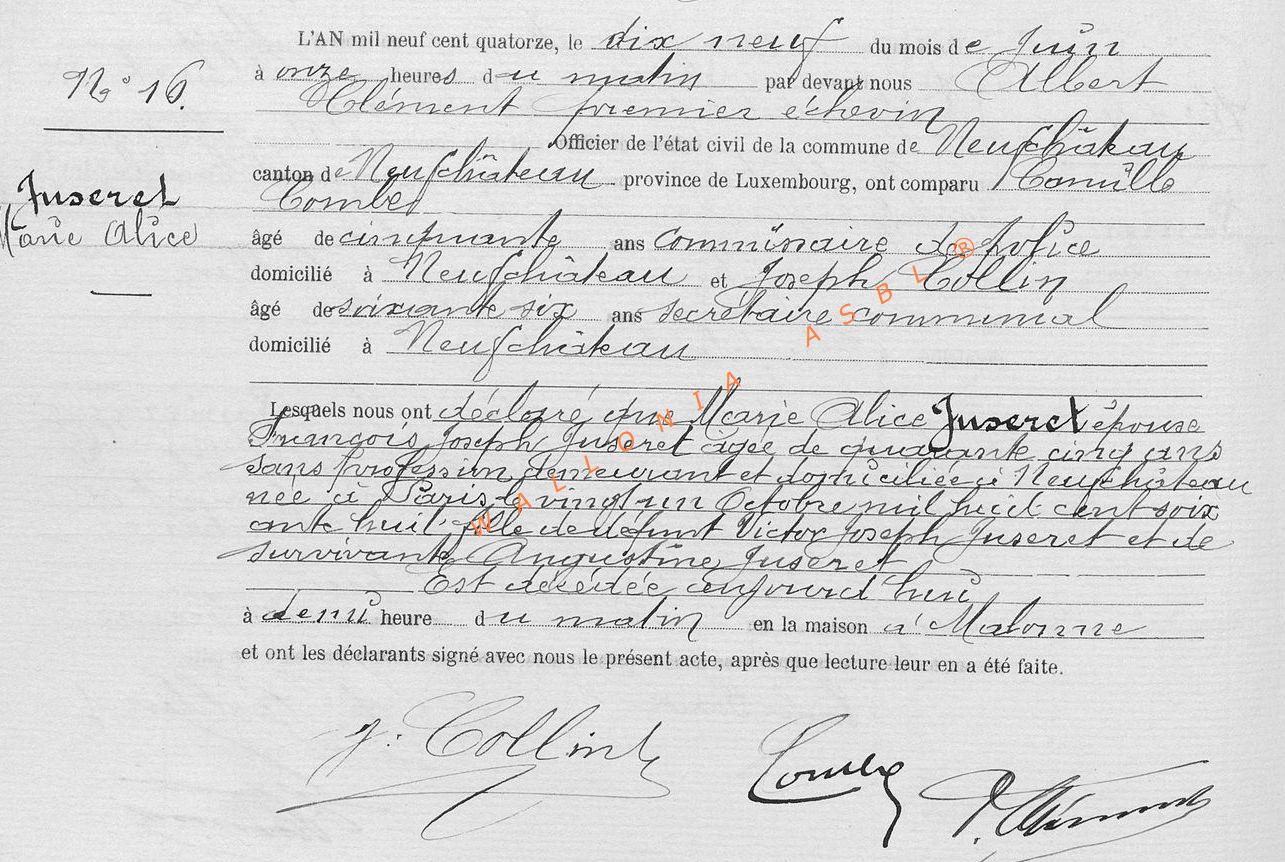 L'AN mil neuf cent quatorze, le dix neuf du mois de Juin
No 16.
à onze heures du matin par devant nous Albert
Clément premier échevin
Officier de l'état civil de la commune de Neufchâteau
canton de Neufchâteau province de Luxembourg, ont comparu Camille
Combes
Juseret
Marie Alice
âgé de cinquante ans commissaire de police
domicilié à Neufchâteau et Joseph Collin
âgé de soixante six ans secrétaire communal
domicilié à Neufchâteau
Lesquels nous ont déclaré que Marie Alice Juseret épouse
François Joseph Juseret âgée de quarante cinq ans
sans profession demeurant et domiciliée à Neufchâteau
née à Paris le vingt un Octobre mil huit cent soix
ante huit fille de défunt Victor Joseph Juseret et de
survivante Augustine Juseret
Est décédée aujourd'hui
à demi heure du matin en la maison à Malonne
et ont les déclarants signé avec nous le présent acte, après que lecture leur en a été faite.
J. Collin
Combes
Clément
WALLONIA ASBL ®